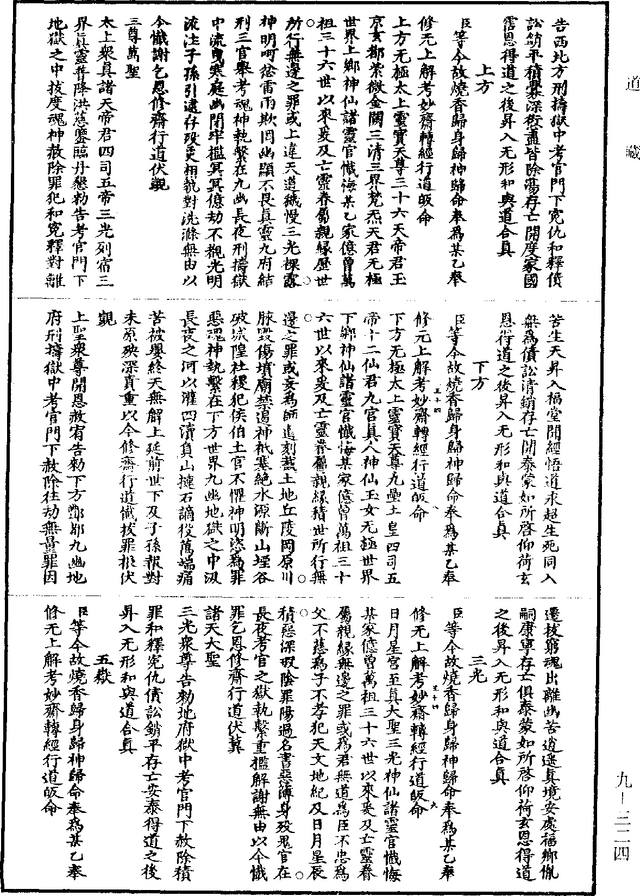 道藏
告西北方刑擣獄中考官門下宽仇和釋債
訟銷平積釁深瑕盡皆除蕩存亡開度家國
霑恩得道之後昇入无形和與道合真
上方
臣等今故燒香歸身歸神歸命奉為某乙奉
修无上解考妙齋轉經行道皈命
上方无極太上靈寶天尊三十六天帝君玉
京玄都紫微金闕三清三界梵炁天君无極
世界上鄉神仙諸靈官懺悔某乙家億曾萬
祖三十六世以來爰及亡靈眷屬親緣歷世
所行無邊之罪或上違天道穢慢三光裸露
神明呵忿雷雨欺罔幽顯不畏真靈九府結
刑三官舉考魂神執繫在九幽長夜刑擣獄
中流曳寒庭幽閉牢檻冥冥億劫不覩光明
流注子孫引逮存歿更相執對洗滌無由以
今懺謝乞恩修齋行道伏覬
三尊萬聖
太上衆真諸天帝君四司五帝三光列宿三
界真靈普降洪慈靈臨丹懇勑告考官門下
地獄之中拔度魂神赦除罪犯和宽釋對離
苦生天昇入福堂聞經悟道永超生死同入
無為債訟清銷存亡開泰蒙如所啓仰荷玄
恩得道之後昇入无形和與道合真
下方
臣等今故燒香歸身歸神歸命奉為某乙奉
修无上解考妙齋轉經行道皈命
下方无極太上靈寶天尊九壘土皇四司五
帝十二仙君九宮真人神仙玉女无極世界
下鄉神仙諸靈官懺悔某家億曾萬祖三十
六世以來爰及亡靈眷屬親緣積世所行無
邊之罪或妄為師造刻截土地丘陵岡原川
脉毀傷墳廟禁遏神祇塞絕水源斷山堙谷
破城隍社稷犯侯伯土官不懼神明恣為罪
惡魂神執繫在下方世界九幽地獄之中汲
長夜之河以灌四瀆負山揵石謫役萬端痛
苦被嬰終天無解上延前世下及子孫報對
未原殃深責重以今修齋行道懺拔罪根伏
覬
上聖衆尊開恩赦宥告勑下方酆都九幽地
府刑擣獄中考官門下赦除往劫無量罪因
還拔窮魂出離幽苦逍遥真境安處福鄉胤
嗣康寧存亡俱泰蒙如所啓仰荷玄恩得道
之後昇入无形和與道合真
三光
臣等今故燒香歸身歸神歸命奉為某乙奉
修无上解考妙齋轉經行道皈命
日月星宮至真大聖三光神仙諸靈官懺悔
某家億曾萬祖三十六世以來爰及亡靈眷
屬親緣無邊之罪或為君無道為臣不忠為
父不慈為子不孝犯天文地紀及日月星辰
積惡深瑕陰罪陽過名書惡簿身歿鬼官在
長夜考官之獄執繫重檻解謝無由以今懺
罪乞恩修齋行道伏冀
諸天大聖
三光衆尊告勑地府獄中考官門下赦除積
罪和釋宽仇債訟銷平存亡安泰得道之後
昇入无形和與道合真
五嶽
臣等今故燒香歸身歸神歸命奉為某乙奉
修无上解考妙齋轉經行道皈命
九－三二四